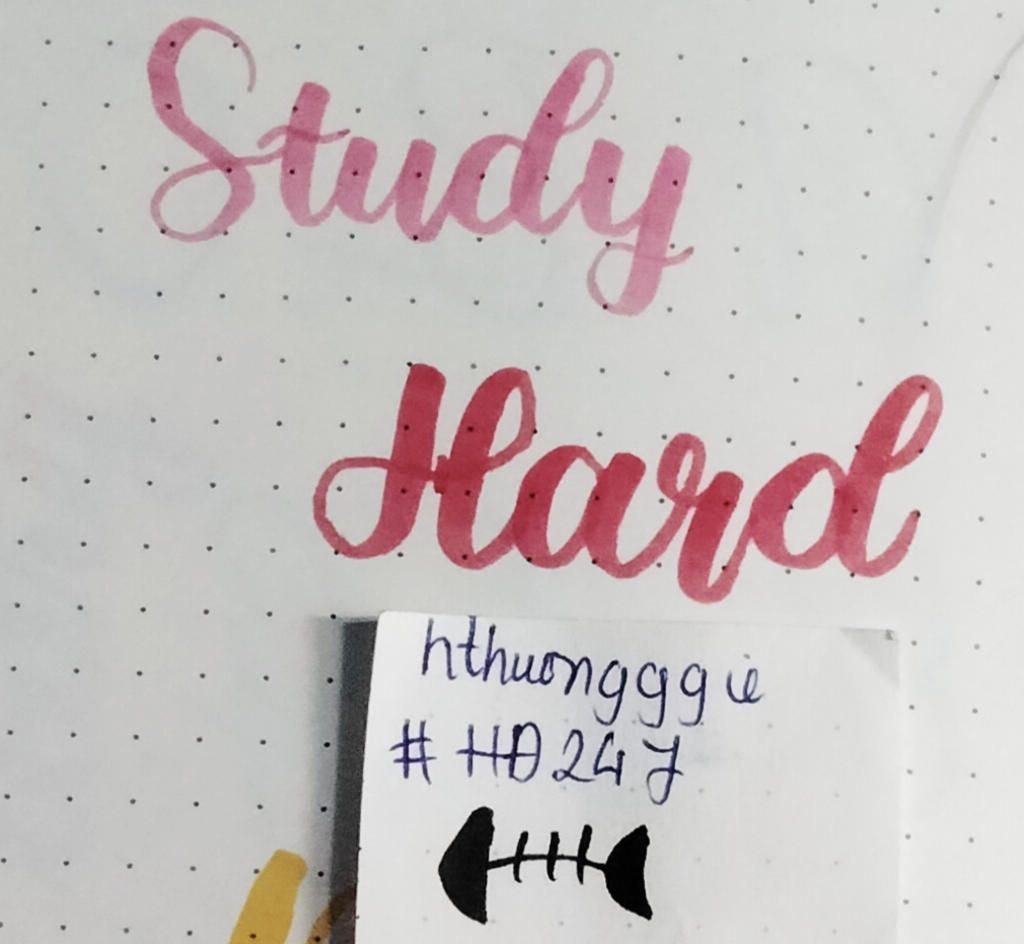 Study
Hard
hthuongggie
#HĐ247